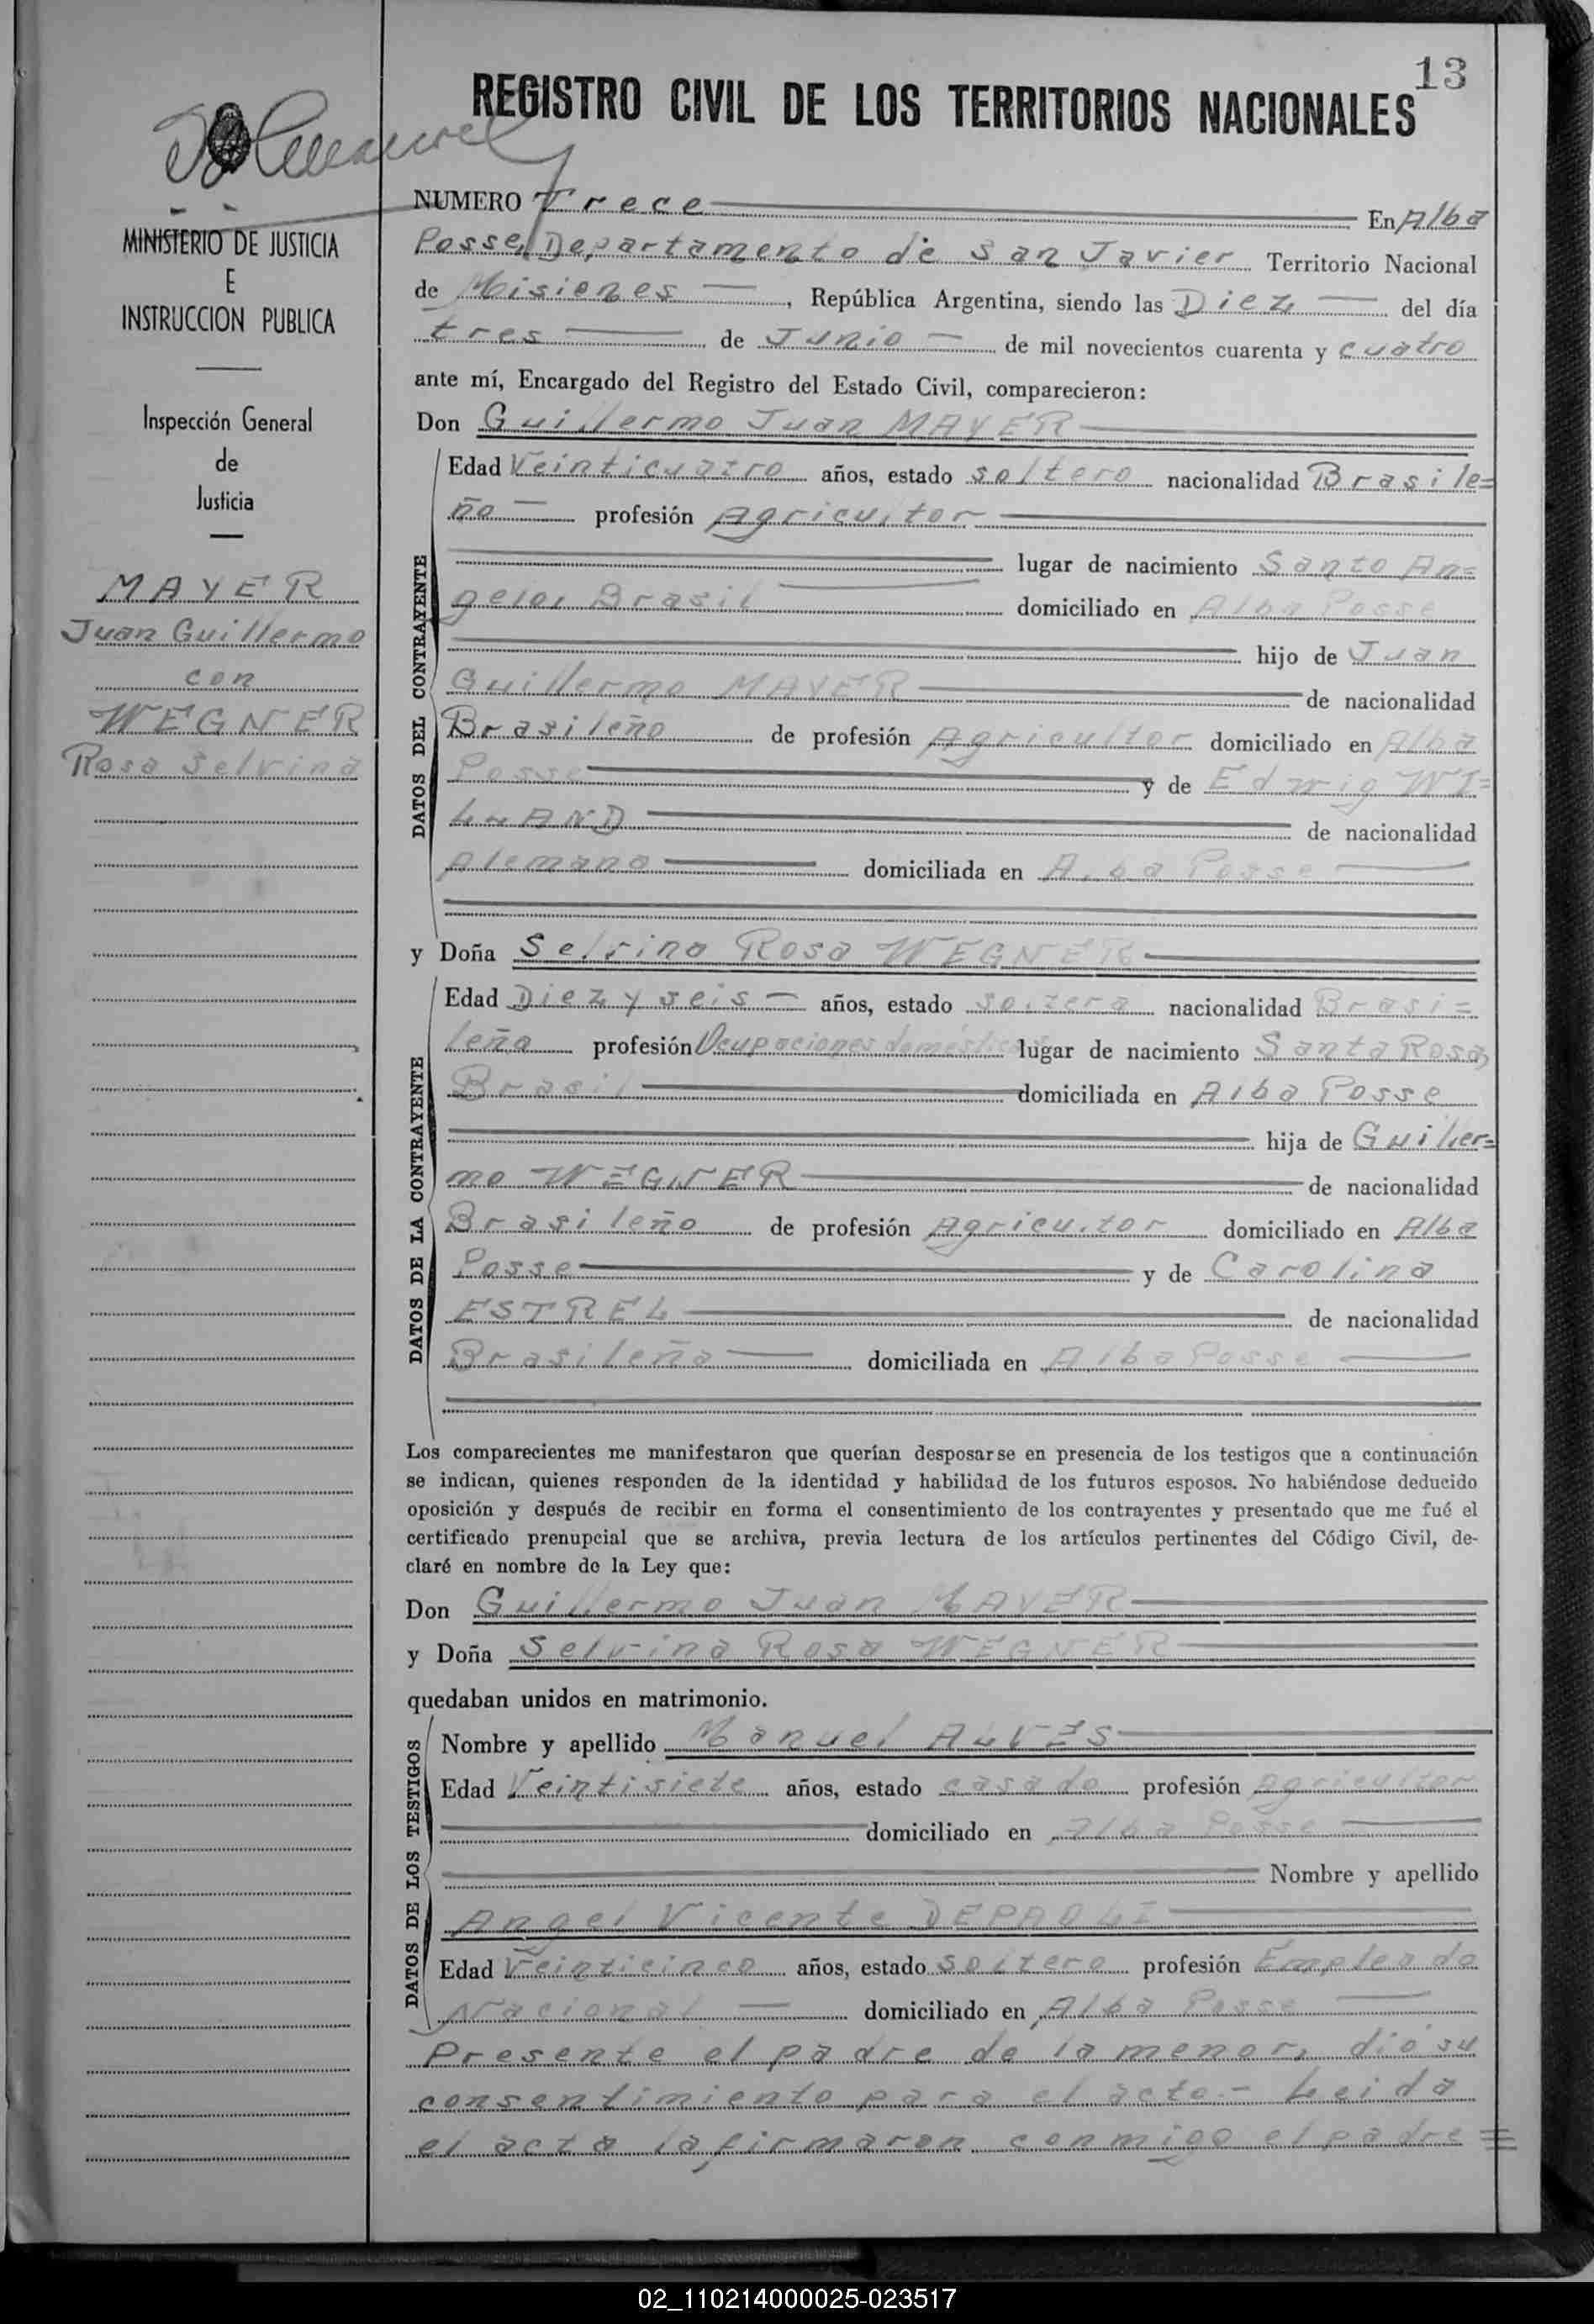 13
REGISTRO CIVIL DE LOS TERRITORIOS NACIONALES
MINISTERIO DE JUSTICIA
E
INSTRUCCION PUBLICA
Inspección General
de
Justicia
MAYER
Juan Guillermo
con
WEGNER
Rosa Selvina
NUMERO Trece En Alba
Posse, Departamento de San Javier Territorio Nacional
de Misiones, República Argentina, siendo las Diez del día
tres de Junio de mil novecientos cuarenta y cuatro
ante mí, Encargado del Registro del Estado Civil, comparecieron:
Don Guillermo Juan MAYER
DATOS DEL CONTRAYENTE
Edad Veinticuatro años, estado soltero nacionalidad Brasile=
ño profesión Agricultor
lugar de nacimiento Santo An=
gelo, Brasil domiciliado en Alba Posse
hijo de Juan
Guillermo MAYER de nacionalidad
Brasileño de profesión Agricultor domiciliado en Alba
Posse y de Edwig WI=
LLAND de nacionalidad
Alemana domiciliada en Alba Posse
y Doña Selvina Rosa WEGNER
DATOS DE LA CONTRAYENTE
Edad Diez y seis años, estado soltera nacionalidad Brasi=
leña profesión Ocupaciones domésticas lugar de nacimiento Santa Rosa,
Brasil domiciliada en Alba Posse
hija de Guiller=
mo WEGNER de nacionalidad
Brasileño de profesión Agricultor domiciliado en Alba
Posse y de Carolina
ESTREL de nacionalidad
Brasileña domiciliada en Alba Posse
Los comparecientes me manifestaron que querían desposarse en presencia de los testigos que a continuación
se indican, quienes responden de la identidad y habilidad de los futuros esposos. No habiéndose deducido
oposición y después de recibir en forma el consentimiento de los contrayentes y presentado que me fué el
certificado prenupcial que se archiva, previa lectura de los artículos pertinentes del Código Civil, de-
claré en nombre de la Ley que:
Don Guillermo Juan MAYER
y Doña Selvina Rosa WEGNER
quedaban unidos en matrimonio.
DATOS DE LOS TESTIGOS
Nombre y apellido Manuel ALVES
Edad Veintisiete años, estado casado profesión Agricultor
domiciliado en Alba Posse
Nombre y apellido
Angel Vicente DEPAOLI
Edad Veinticinco años, estado soltero profesión Empleado
Nacional domiciliado en Alba Posse
Presente el padre de la menor, dió su
consentimiento para el acto.- Leida
el acta la firmaron conmigo el padre =
02_110214000025-023517